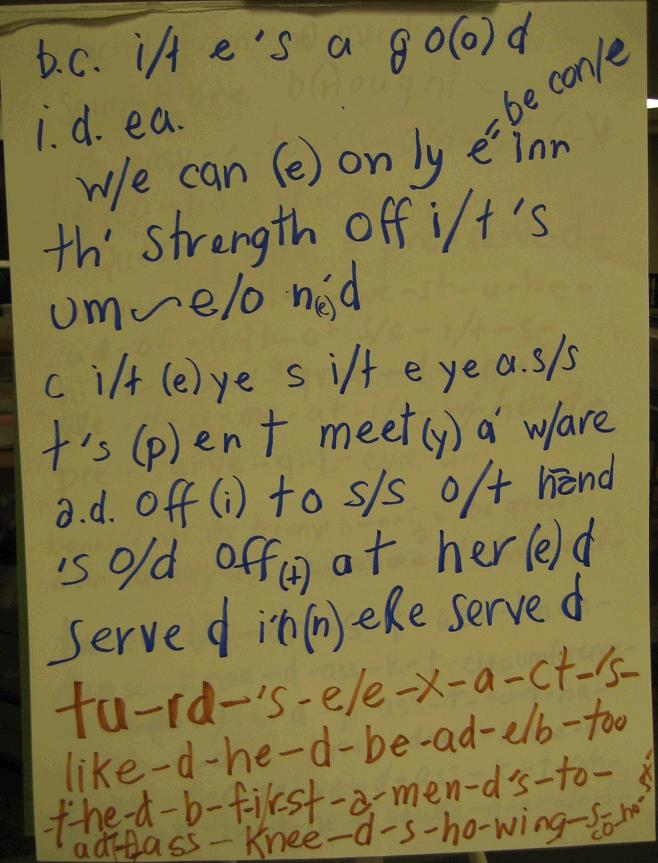 b.c. i/t e's a g o(o) d
i.d. ea. be con/e
w/e can (e) on ly e" inn
th' strength off i/t's
um~e/o n(e)'d
c i/t (e) ye s i/t e ye a.s/s
t's (p) en t meet(y) a' w/are
a.d. off (i) to s/s o/t hand
's o/d off(t) at her(e) d
serve d i'n(n) eRe serve d
tu-rd-'s-e/e-x-a-ct-'s-
like-d-he-d-be-ad-e/b-too
-t-he-d-b-fi/rst-a-men-d's-to-
ass-knee-d-s-ho-wing-s-